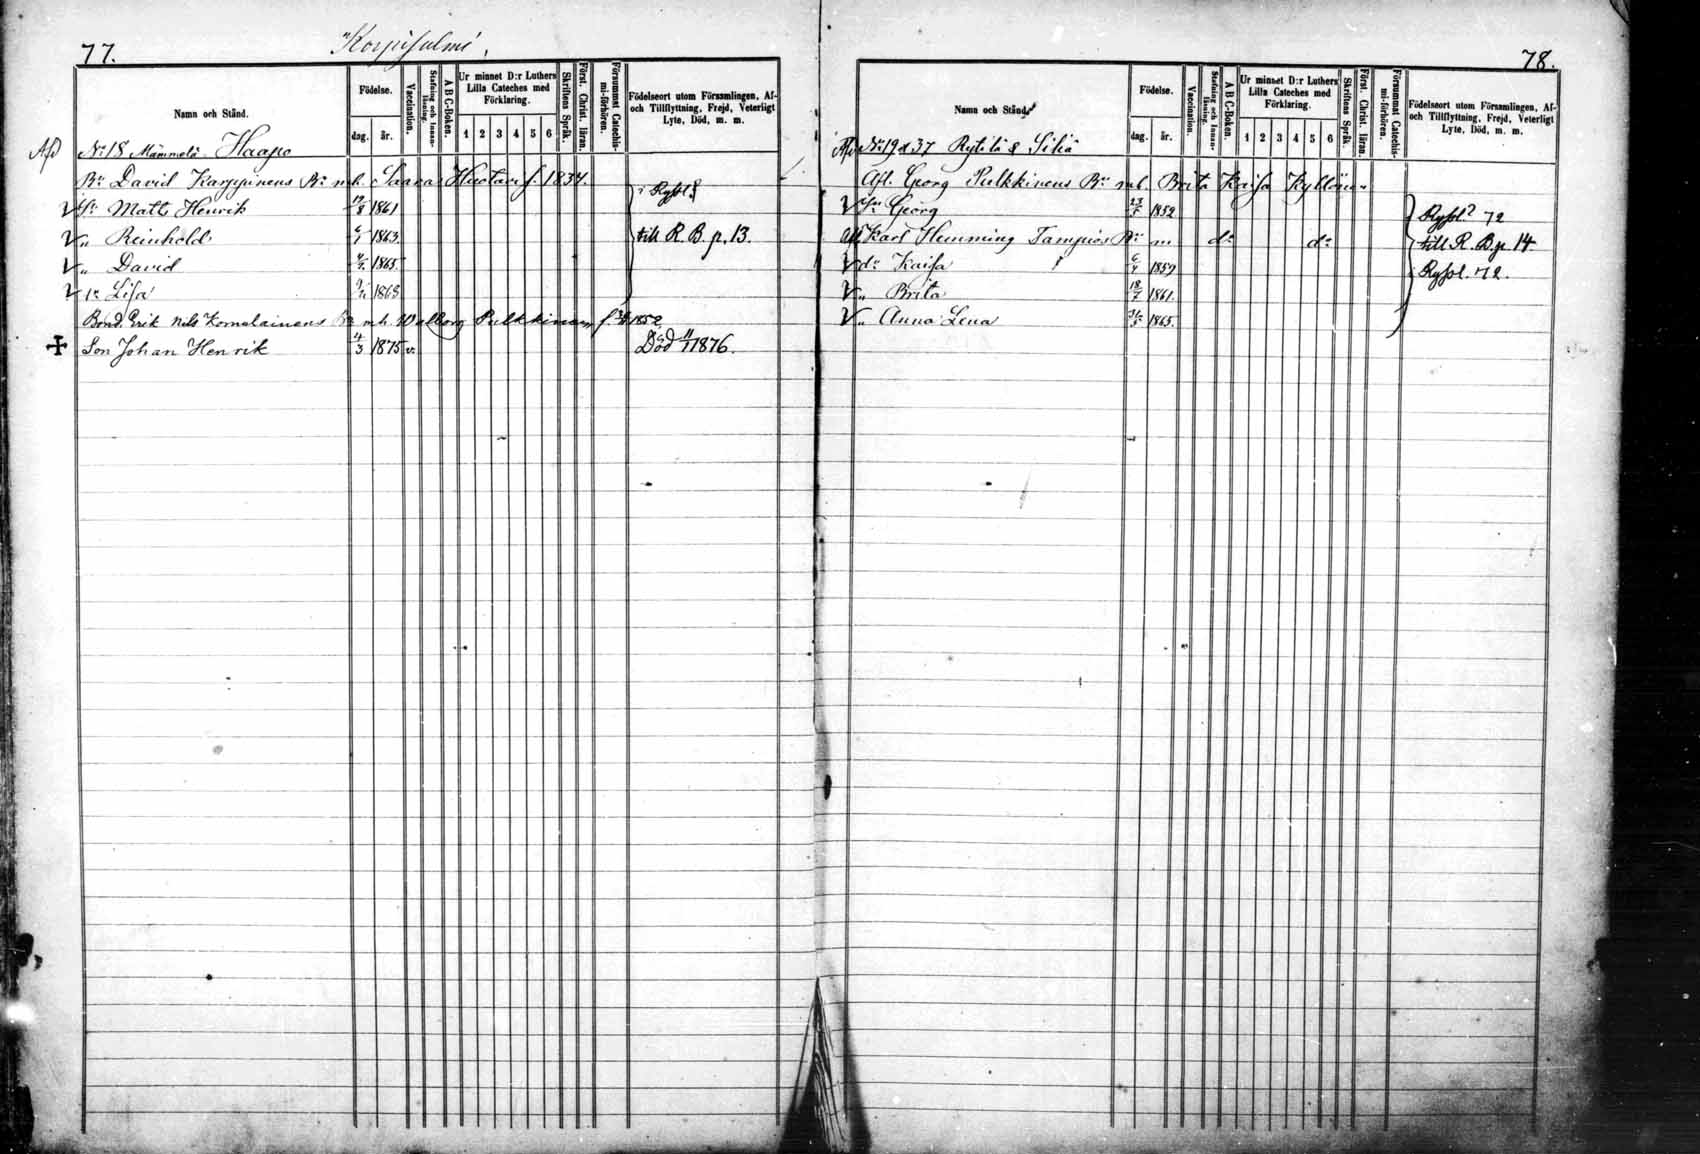 77.
"Korpisalmi"
Namn och Stånd.
Födelse.
dag. år.
Vaccination.
Stafning och Innanläsning.
A B C-Boken.
Ur minnet D:r Luthers Lilla Cateches med Förklaring.
1 2 3 4 5 6
Skriftens Språk.
Först. Christ. läran.
Försummat Catechismi-förhören.
Födelseort utom Församlingen, Af- och Tillflyttning, Frejd, Veterligt Lyte, Död, m. m.
No 18 Mämmelä Haapo
Bn David Karppinens Bn m.h. Saara f. 1834.
Sn Matts Henrik 1861
" Reinhold 6/1 1863. till R. B. p. 13.
" David 1865.
Dr Lisa 1868
Bond. Erik Nils Komulainens Bn m.h. Walborg Pulkkinen f. 1852
Son Johan Henrik 4/3 1875 v. Död 1876.
78.
Namn och Stånd.
Födelse.
dag. år.
Vaccination.
Stafning och Innanläsning.
A B C-Boken.
Ur minnet D:r Luthers Lilla Cateches med Förklaring.
1 2 3 4 5 6
Skriftens Språk.
Först. Christ. läran.
Försummat Catechismi-förhören.
Födelseort utom Församlingen, Af- och Tillflyttning, Frejd, Veterligt Lyte, Död, m. m.
No 19 & 37 Rytilä & Siliä
Afl. Georg Pulkkinens Bn m.h. Brita Kaisa Kyllönen
Sn Georg 23/7 1852 72
Karl Hemming Tampios Bn m do do till R. B. p. 14
dr Kaisa 6/4 1859 72.
" Brita 18/7 1861.
" Anna Lena 1865.